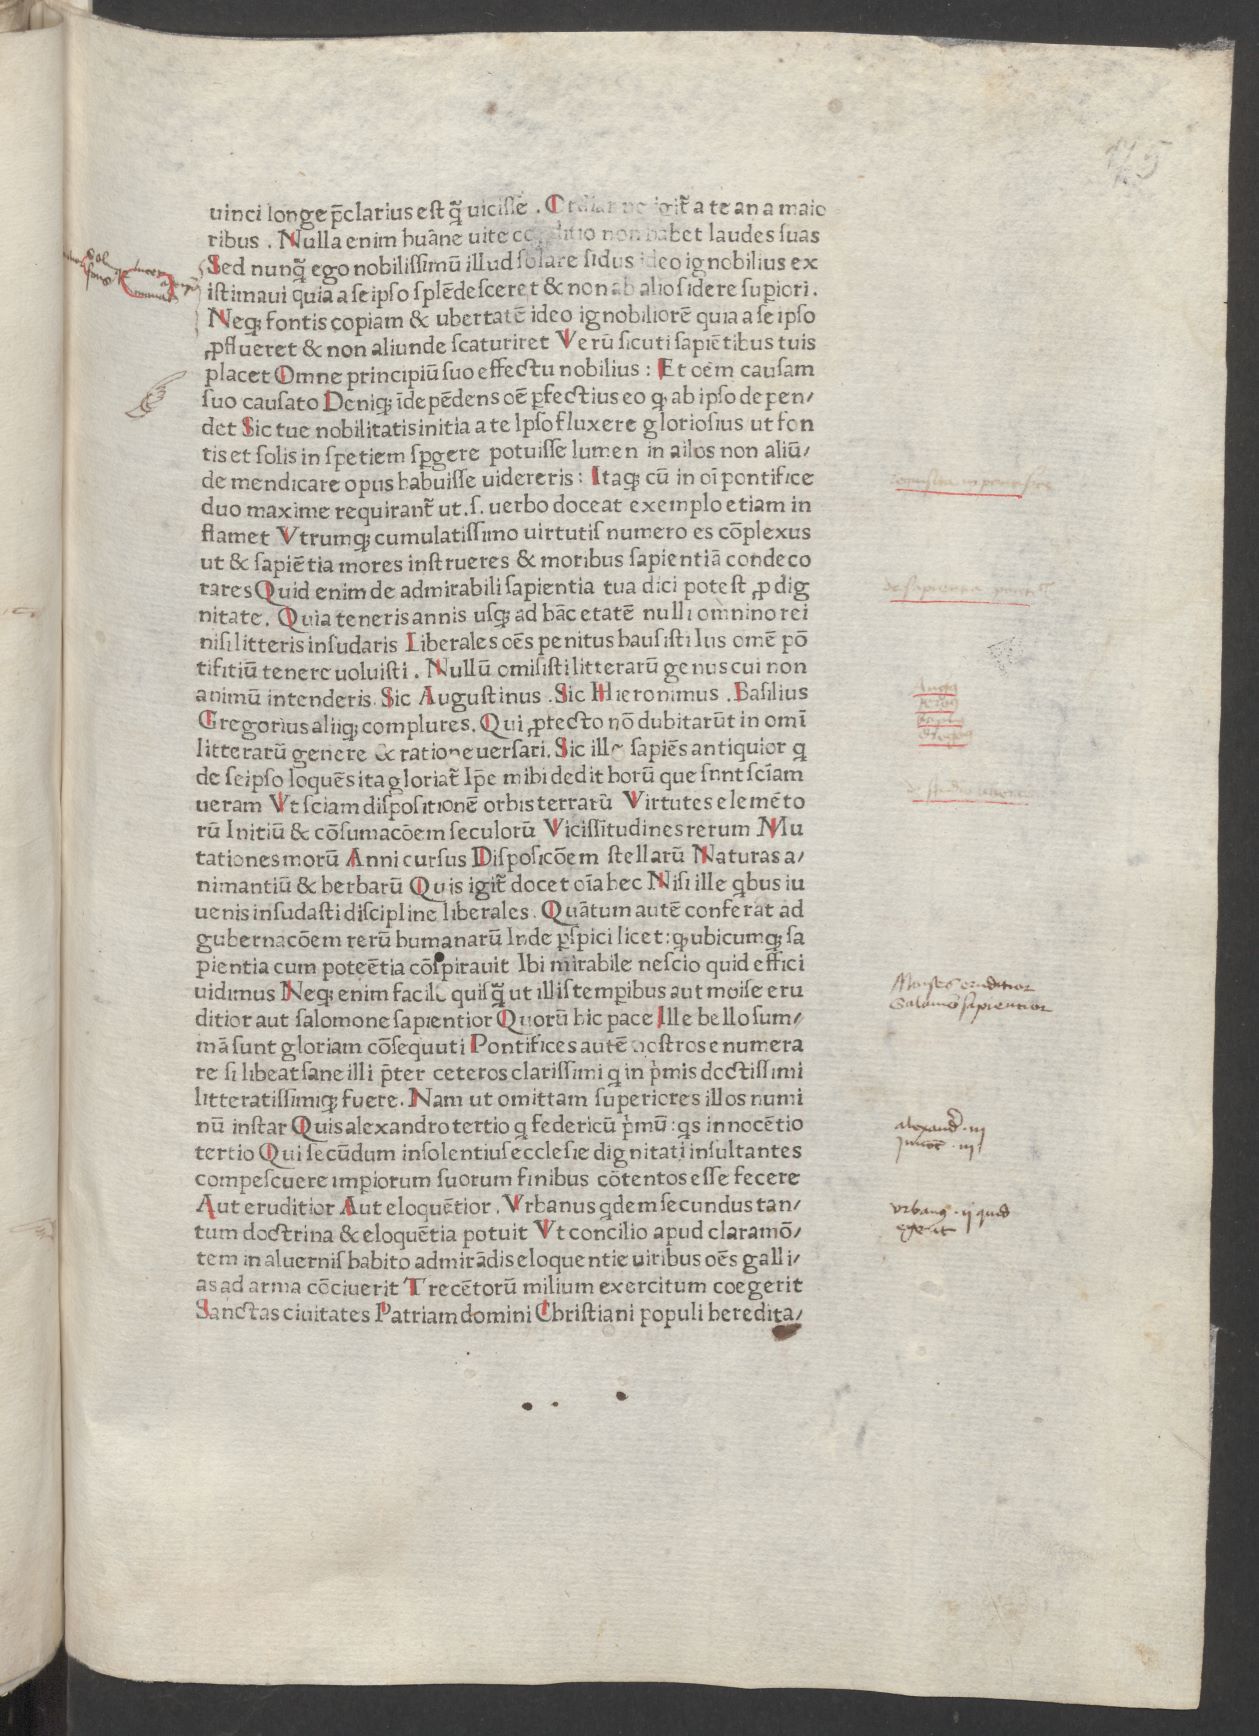 uinci longe p̄clarius est q̄ uicisse . igit̃ a te an a maio
ribus . Nulla enim huāne uite conditio non habet laudes suas
Sed nunq̄ ego nobilissimū illud solare sidus ideo ignobilius ex
istimaui quia a se ipso splēdesceret & non ab alio sidere superiori .
Neqꝫ fontis copiam & ubertatē ideo ignobiliorē quia a se ipso
ꝓflueret & non aliunde scaturiret Verū sicuti sapiētibus tuis
placet Omne principiū suo effectu nobilius : Et oēm causam
suo causato Deniqꝫ īdepēdens oē ꝑfectius eo qꝫ ab ipso depen/
det Sic tue nobilitatis initia a te Ipso fluxere gloriosius ut fon
tis et solis in spetiem spgere potuisse lumen in ailos non aliū/
de mendicare opus habuisse uidereris : Itaqꝫ cū in oī pontifice
duo maxime requirant̃ ut .s. uerbo doceat exemplo etiam in
flamet Vtrumqꝫ cumulatissimo uirtutis numero es cōplexus
ut & sapiētia mores instrueres & moribus sapientiā condeco
rares Quid enim de admirabili sapientia tua dici potest ꝓ dig
nitate . Quia teneris annis usqꝫ ad hāc etatē nulli omnino rei
nisi litteris insudaris Liberales oēs penitus hausisti Ius omē pō
tifitiū tenere uoluisti . Nullū omisisti litterarū genus cui non
animū intenderis. Sic Augustinus .Sic Hieronimus . Basilius
Gregorius aliiqꝫ complures. Qui ꝓfecto nō dubitarūt in omī
litterarū genere & ratione uersari. Sic ille sapiēs antiquior q
de seipso loquēs ita gloriat̃ Ip̄e mihi dedit horū que sunt sciam
ueram Vt sciam dispositionē orbis terrarū Virtutes elemēto
rū Initiū & cōsumacōem seculorū Vicissitudines rerum Mu
tationes morū Anni cursus Disposicōem stellarū Naturas a/
nimantiū & herbarū Quis igit̃ docet oīa hec Nisi ille qbus iu
uenis insudasti discipline liberales . Quātum autē conferat ad
gubernacōem rerū humanarū Inde ꝑspici licet : qꝫ ubicumqꝫ sa
pientia cum poteētia cōspirauit Ibi mirabile nescio quid effici
uidimus Neqꝫ enim facile quisq̄ ut illis temꝑibus aut moise eru
ditior aut salomone sapientior Quorū hic pace Ille bello sum/
mā sunt gloriam cōsequuti Pontifices autē nostros enumera
re si libeat sane illi p̄ter ceteros clarissimi q in pͥmis doctissimi
litteratissimiqꝫ fuere. Nam ut omittam superiores illos numi
nū instar Quis alexandro tertio q federicū pͥmū : qs innocētio
tertio Qui secūdum insolentius ecclesie dignitati insultantes
compescuere impiorum suorum finibus cōtentos esse fecere
Aut eruditior Aut eloquētior . Vrbanus qdem secundus tan/
tum doctrina & eloquētia potuit Vt concilio apud claramō/
tem in aluernis habito admirādis eloquentie uiribus oēs galli/
as ad arma cōciuerit Trecētorū milium exercitum coegerit
Sanctas ciuitates Patriam domini Christiani populi heredita/
de sapientia
Moises eruditior
Salamō sapientior
alexand̄ . iij
Innoc̄ . iij
vrbanꝰ . ij quid
egerit